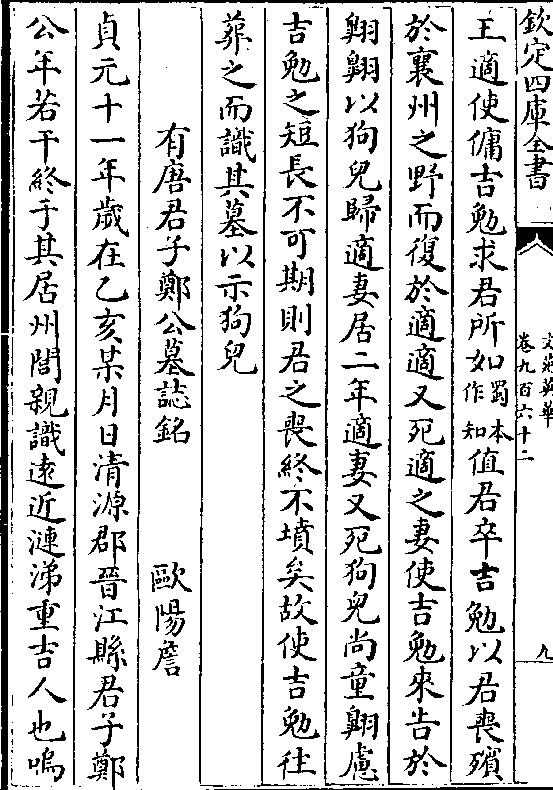 欽定四庫全書
文苑英華
卷九百六十二
九
王適使傭吉勉求君所如蜀本作知值君卒吉勉以君喪殯
於襄州之野而復於適適又死適之妻使吉勉來告於
翺翺以狗兒歸適妻居二年適妻又死狗兒尚童翺慮
吉勉之短長不可期則君之喪終不墳矣故使吉勉往
葬之而識其墓以示狗兒
有唐君子鄭公墓誌銘 歐陽詹
貞元十一年歲在乙亥某月日清源郡晉江縣君子鄭
公年若干終于其居州閭親識遠近漣涕重吉人也嗚